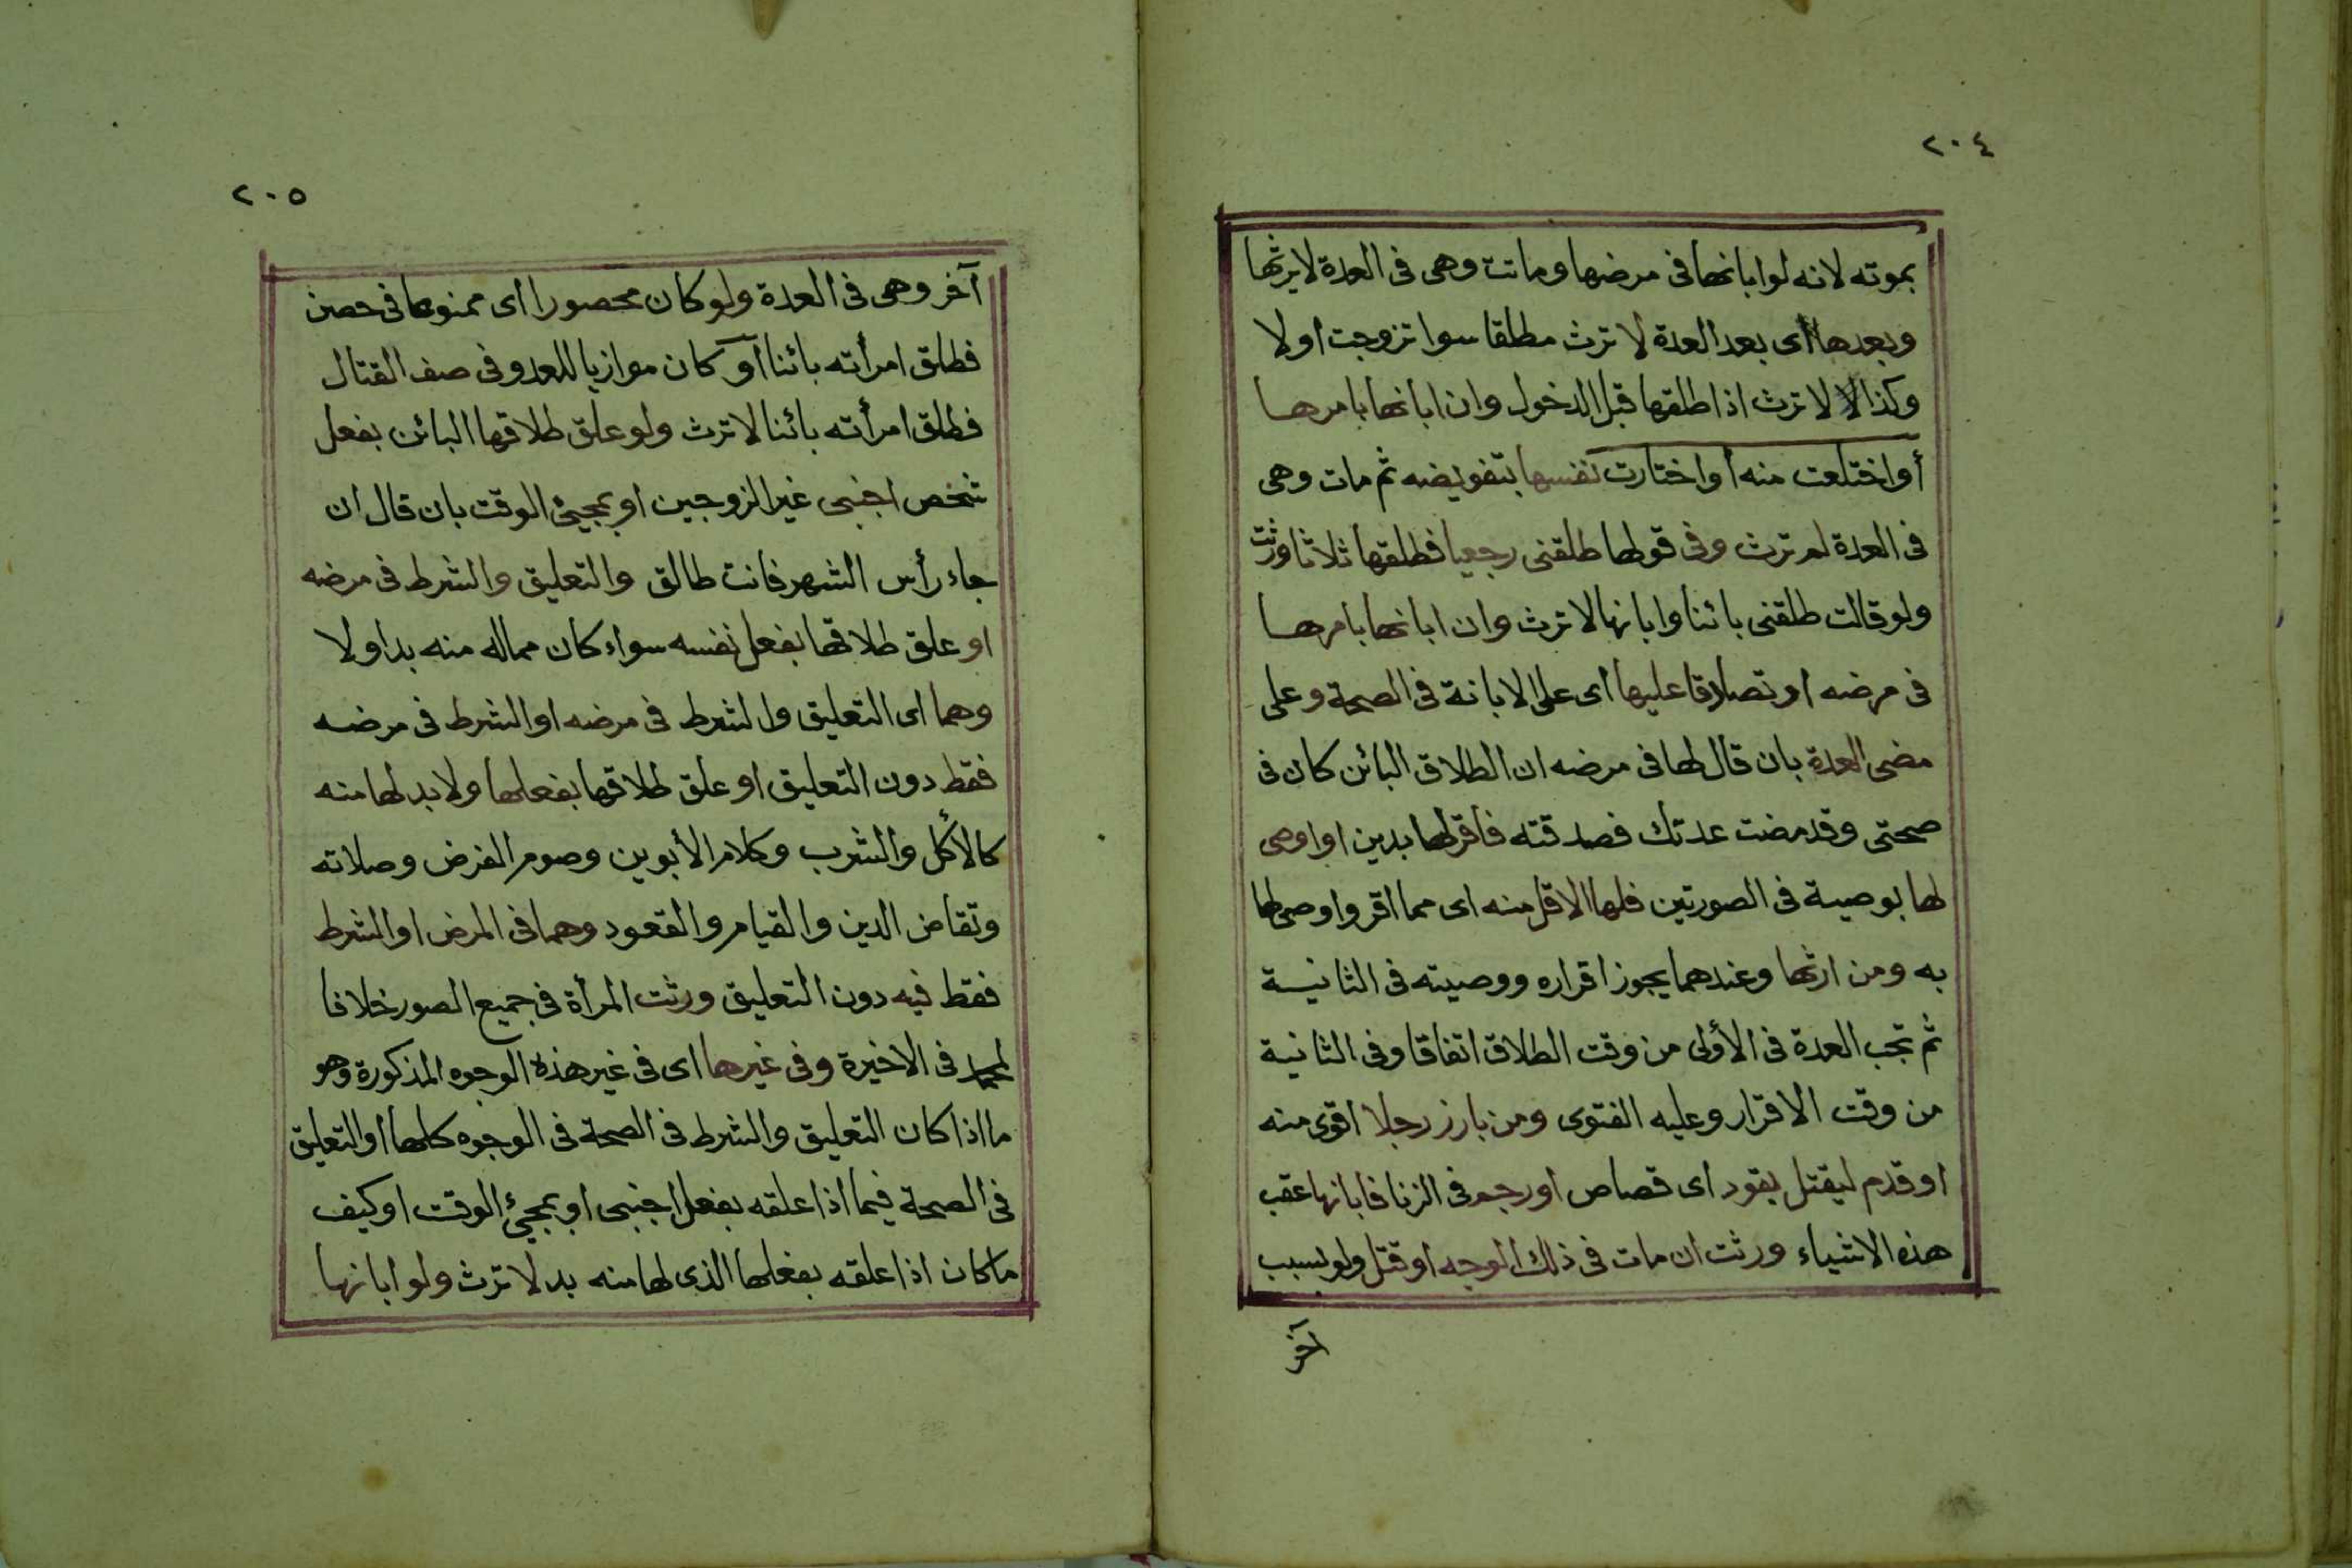 ٢٠٤
بموته لانه لوابانها فى مرضها وماتت وهى فى العدة لايرثها
وبعدها اى بعد العدة لا ترث مطلقا سوا تزوجت اولا
وكذا لا ترث اذا طلقها قبل الدخول وان ابانها بامرها
أواختلعت منه أواختارت نفسها بتفويضه ثم مات وهى
فى العدة لم ترث وفى قولها طلقنى رجعيا فطلقها ثلاثا ورثت
ولوقالت طلقنى بائنا وابانها لا ترث وان ابانها بامرها
فى مرضه اوتصادقا عليها اى على الابانة فى الصحة وعلى
مضى العدة بان قال لها فى مرضه ان الطلاق البائن كان فى
صحتى وقدمضت عدتك فصدقته فاقرلها بدين اواوصى
لها بوصية فى الصورتين فلها الاقل منه اى مما اقر واوصى لها
به ومن ارثها وعندهما يجوز اقراره ووصيته فى الثانية
ثم تجب العدة فى الأولى من وقت الطلاق اتفاقا وفى الثانية
من وقت الاقرار وعليه الفتوى ومن بارز رجلا اقوى منه
اوقدم ليقتل بقود اى قصاص اورجم فى الزنا فابانها عقب
هذه الاشياء ورثت ان مات فى ذلك الوجه اوقتل ولوبسبب
آخر
٢٠٥
آخر وهى فى العدة ولوكان محصورا اى ممنوعا فى حصن
فطلق امرأته بائنا أوكان موازيا للعدو فى صف القتال
فطلق امرأته بائنا لا ترث ولوعلق طلاقها البائن بفعل
شخص اجنبى غير الزوجين اوبمجيئ الوقت بان قال ان
جاء رأس الشهر فانت طالق والتعليق والشرط فى مرضه
اوعلق طلاقها بفعل نفسه سواء كان مماله منه بداولا
وهما اى التعليق ولشرط فى مرضه اوالشرط فى مرضه
فقط دون التعليق اوعلق طلاقها بفعلها ولابدلها منه
كالأكل والشرب وكلام الأبوين وصوم الفرض وصلاته
وتقاض الدين والقيام والقعود وهما فى المرض اوالشرط
فقط فيه دون التعليق ورثت المرأة فى جميع الصور خلافا
لمحمد فى الاخيرة وفى غيرها اى فى غير هذه الوجوه المذكورة وهو
ما اذا كان التعليق والشرط فى الصحة فى الوجوه كلها اوالتعليق
فى الصحة فيما اذا علقه بفعل اجنبى اوبمجيئ الوقت اوكيف
ماكان اذا علقه بفعلها الذى لها منه بد لا ترث ولوابانها